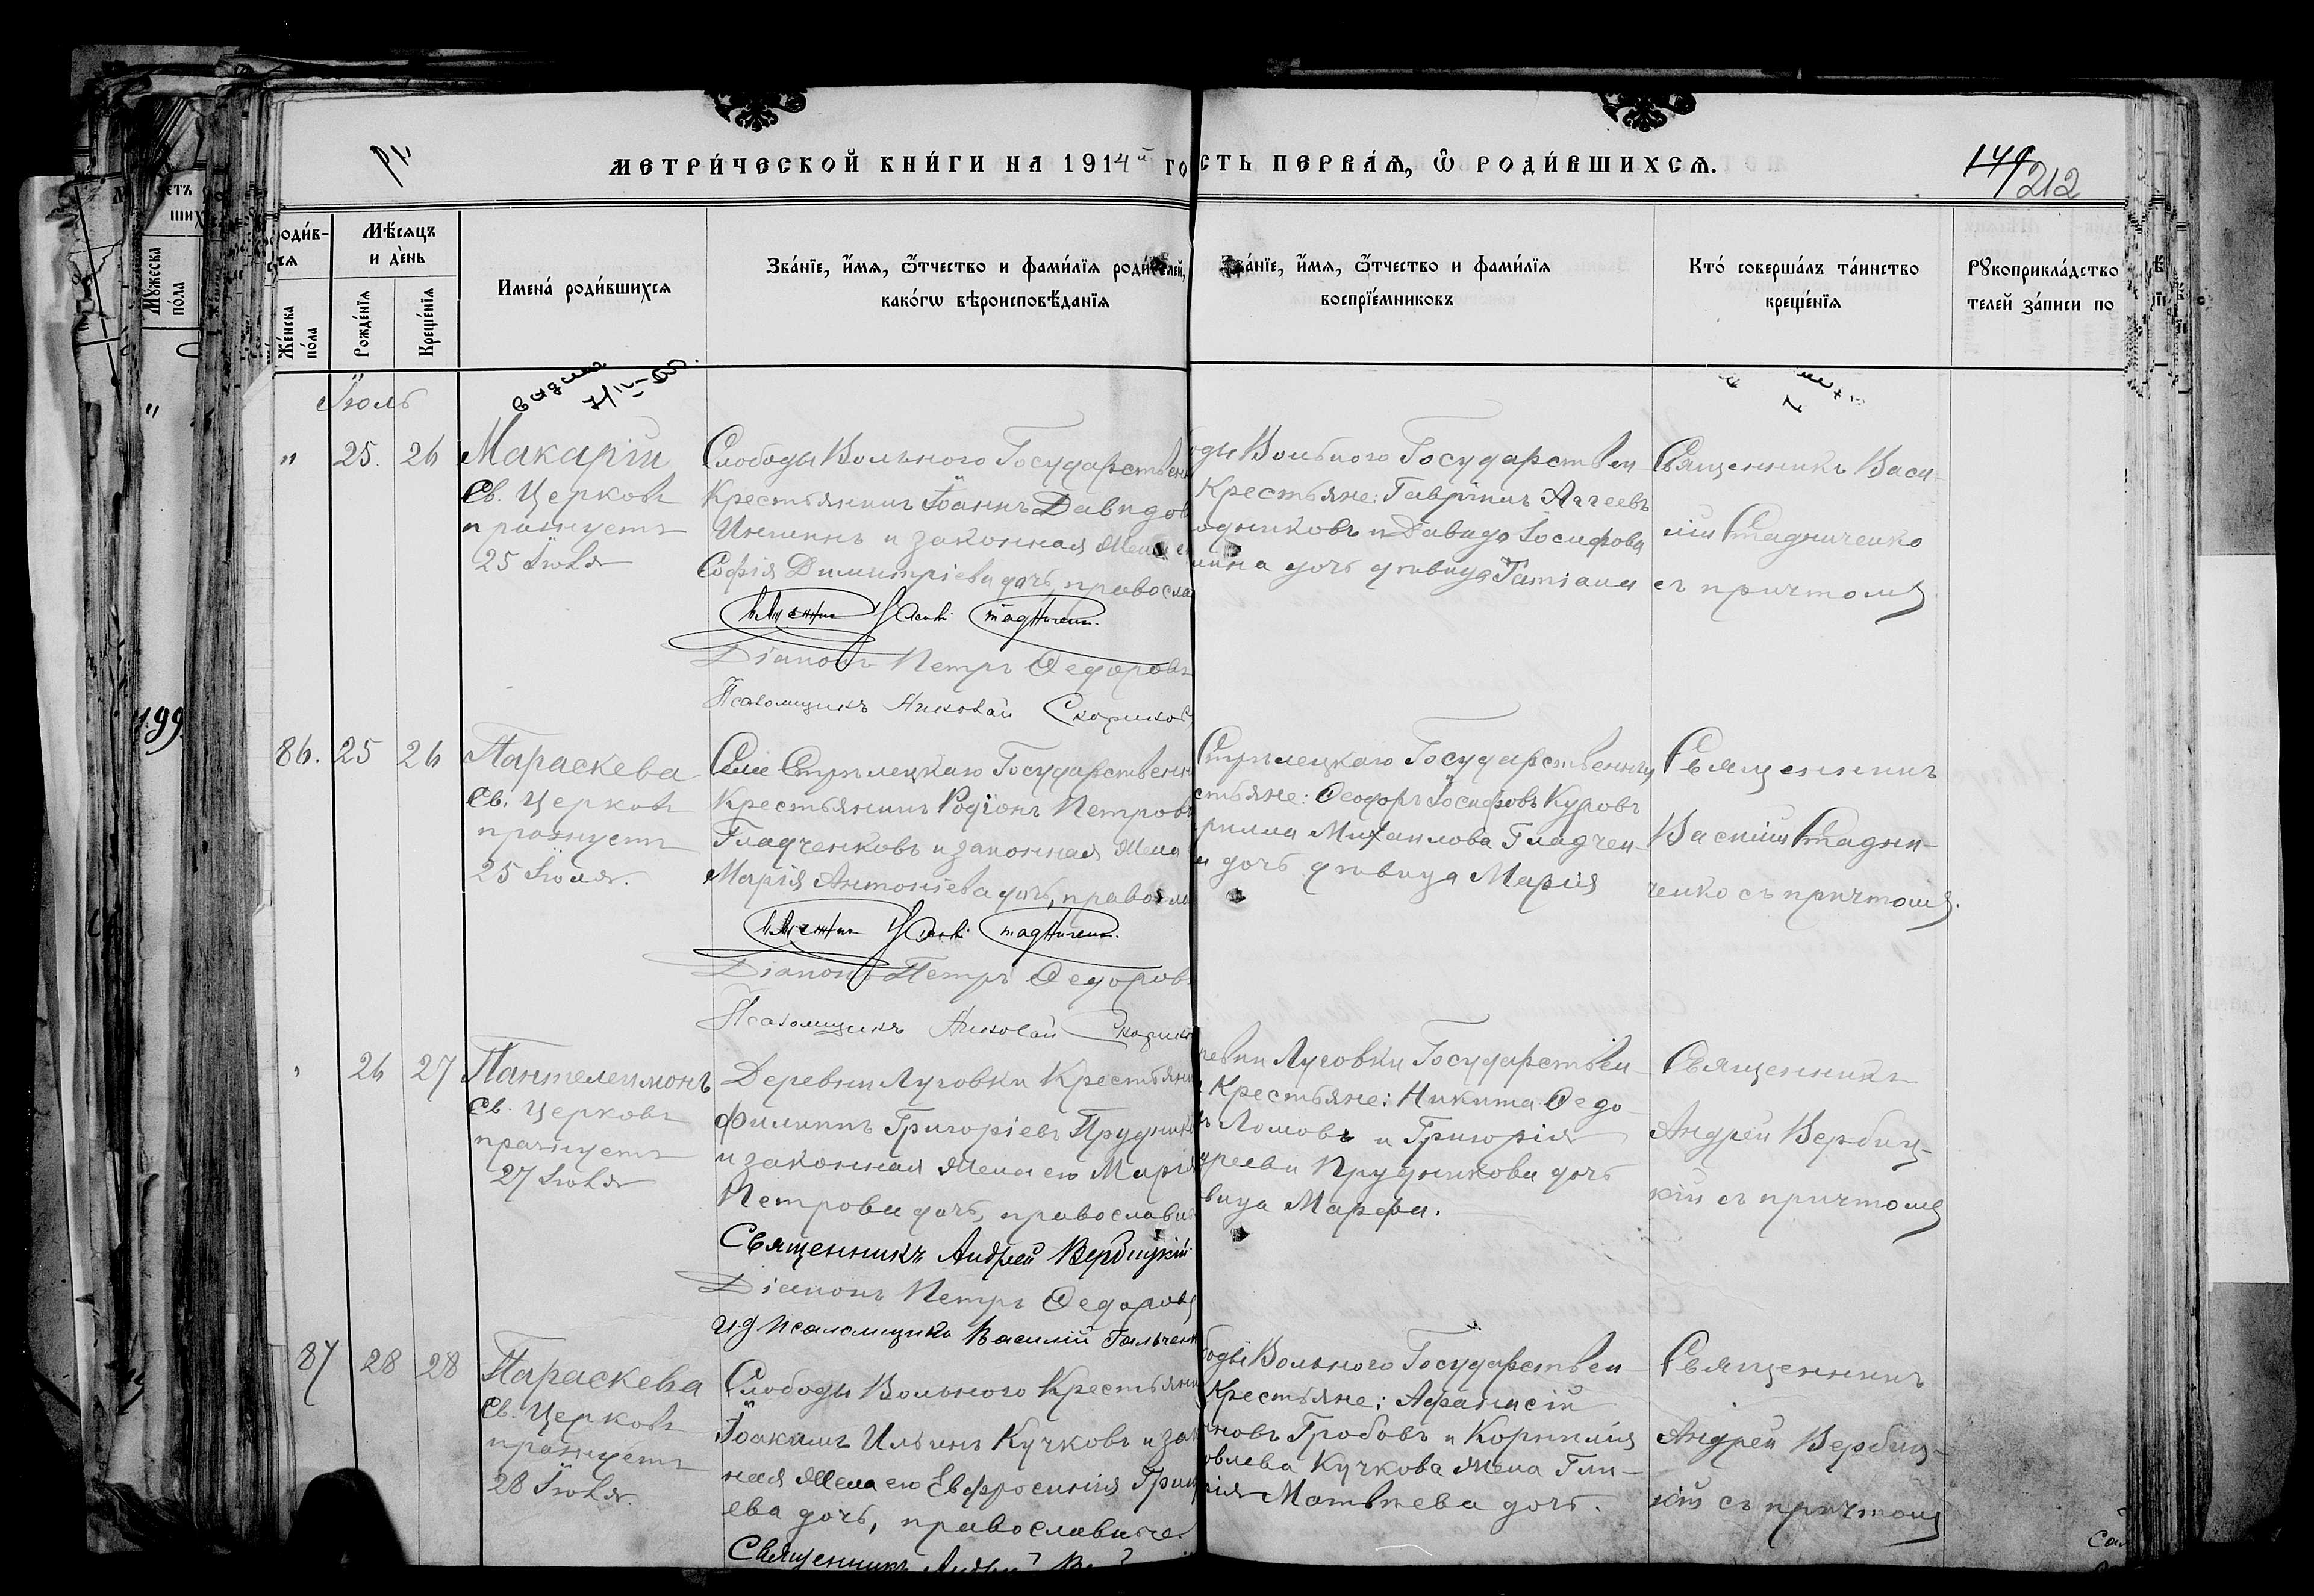 МЕТРИ́ЧЕСКОЙ КНИ́ГИ НА 1914й ГО
СТЬ ПЕРВА́Ѧ, Ѽ РОДИ́ВШИХСѦ.
149 212
роди́в-
сѧ
Мѣ́сѧцъ
и де́нь
Же́нска
по́ла
Рожде́нїѧ
Креще́нїѧ
Имена̀ роди́вшихсѧ
Зва́нїе, и҆́мѧ, ѻ҆́тчество и фами́лїѧ роди́телей,
како́гѡ вѣроисповѣ́данїѧ
Зва́нїе, и҆́мѧ, ѻ҆́тчество и фами́лїѧ
воспрїе́мниковъ
Кто́ соверша́лъ та́инство
креще́нїѧ
Рꙋкоприкла́дство
телей за́писи по
Мꙋ́жеска
по́ла
199
Іюль
" 25. 26
Макарій
Св. Церковь
празнуетъ
25 Іюля
Слободы Вольного Государствен
Крестьянинъ Іоаннъ Давидов
и законная жена
Софія Димитріева дочь, правосла
Діаконъ Петръ Ѳедоровъ
Псаломщикъ Николай Скориков
оды Вольного Государствен
Крестьяне: Гавріилъ Аггеевъ
одниковъ и Давида Іосифова
дочь дѣвица Татіана
Священникъ Васи-
лій Стадниченко
съ причтомъ
86. 25 26
Параскева
Св. Церковь
празнуетъ
25 Іюля.
Села Стрѣлецкаго Государственн
Крестьянинъ Родіонъ Петровъ
Гладченковъ и законная жена
Марія Антоніева дочь, правосла
Діаконъ Петръ Ѳедоровъ
Псаломщикъ Николай Скорико
Стрѣлецкаго Государственны
стьяне: Ѳеодоръ Іосифовъ Куровъ
рилла Михаилова Гладчен-
а дочь дѣвица Марія
Священникъ
Василій Стадни-
ченко съ причтомъ.
26 27
Пантелеимонъ
Св. Церковь
празнуетъ
27 Іюля
Деревни Луговки Крестьяни
Филиппъ Григоріевъ Прудник
и законная жена его Марія
Петрова дочь, православн
Священникъ Андрей Вербицкій
Діаконъ Петръ Ѳедоровъ
И.д. псаломщика Василій Гальченк
ревни Луговки Государствен-
Крестьяне: Никита Ѳедо-
ъ Ломовъ и Григорія
дреева Прудникова дочь
вица Марѳа.
Священникъ
Андрей Вербиц-
кій съ причтомъ
87 28 28
Параскева
Св. Церковь
празнуетъ
28 Іюля.
Слободы Вольного Крестьяни
Іоакимъ Ильинъ Кучковъ и зак
ная жена его Евфросинія Григ
ева дочь, православные.
Священникъ Андрей
боды Вольного Государствен-
Крестьяне: Аѳанасій
новъ Гробовъ и Корнилія
овлева Кучкова жена Гли-
рія Матвѣева дочь.
Священникъ
Андрей Вербиц-
кій съ причтомъ